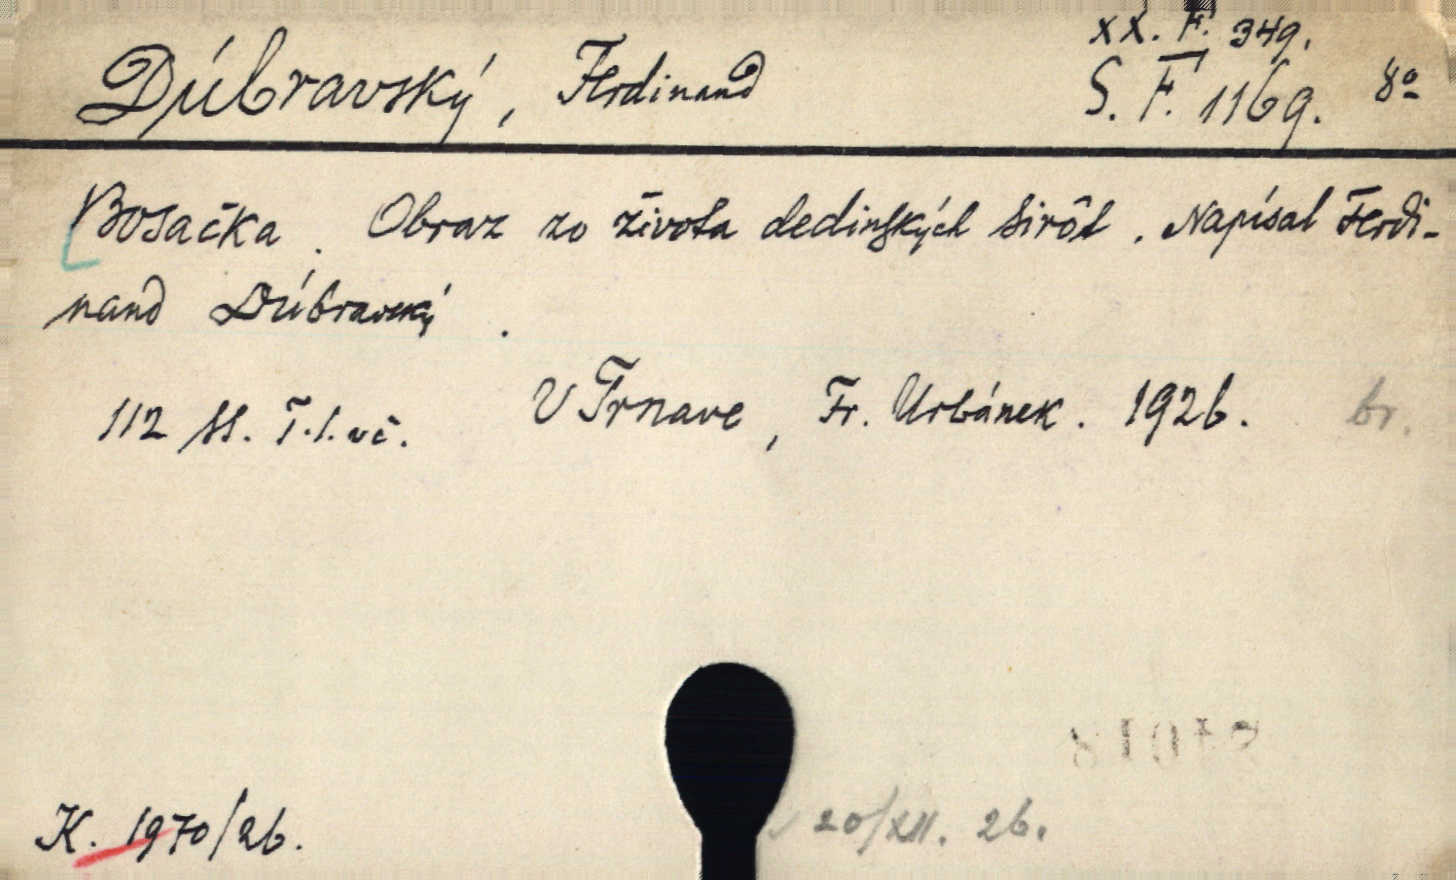 XX. F. 349.
Dúbravský, Ferdinand
S. F. 1169. 8º
Bosačka. Obraz zo života dedinských sirôt. Napísal Ferdi-
nand Dúbravský.
112 ss. T.l.vč. V Trnave, Fr. Urbánek. 1926. br.
K. 1970/26.
20/XII. 26.